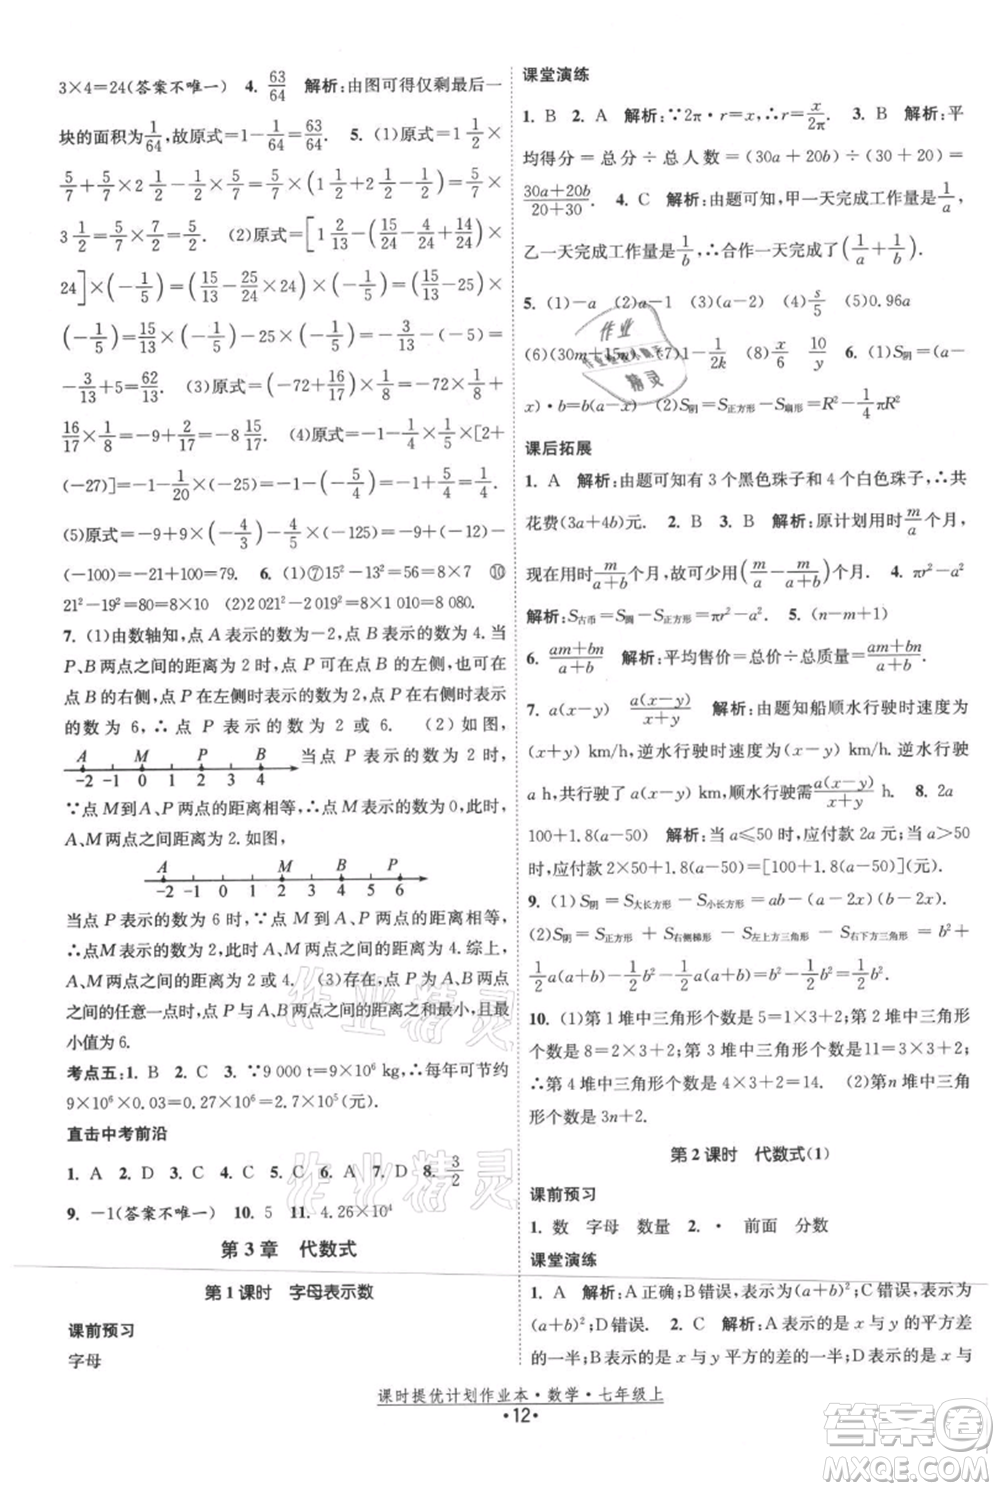 3×4=24(答案不唯一)　4. 63/64　解析:由图可得仅剩最后一
块的面积为1/64,故原式=1-1/64=63/64.　5. (1)原式=1 1/2×
5/7+5/7×2 1/2-1/2×5/7=5/7×(1 1/2+2 1/2-1/2)=5/7×
3 1/2=5/7×7/2=5/2.　(2)原式=[1 2/13-(3/24+4/24+14/24)×
24]×(-1/5)=(15/13-25/24×24)×(-1/5)=(15/13-25)×
(-1/5)=15/13×(-1/5)-25×(-1/5)=-3/13-(-5)=
-3/13+5=62/13.　(3)原式=(-72+16/17)×1/8=-72×1/8+
16/17×1/8=-9+2/17=-8 15/17.　(4)原式=-1-1/4×1/5×[2+
(-27)]=-1-1/20×(-25)=-1+5/4=1/4.
(5)原式=-9+9×(-4/3)-4/5×(-125)=-9+(-12)-
(-100)=-21+100=79.　6. (1)⑦15²-13²=56=8×7　⑩
21²-19²=80=8×10　(2)2 021²-2 019²=8×1 010=8 080.
7. (1)由数轴知,点 A 表示的数为-2,点 B 表示的数为 4. 当
P、B 两点之间的距离为 2 时,点 P 可能在点 B 的左侧,也可能在
点 B 的右侧,点 P 在左侧时表示的数为 2,点 P 在右侧时表示
的数为 6,∴点 P 表示的数为 2 或 6.　(2)如图,
A M P B
-2 -1 0 1 2 3 4
当点 P 表示的数为 2 时,
∵点 M 到点 A、P 两点的距离相等,∴点 M 表示的数为 0,∴
A、M 两点之间距离为 2. 如图,
A M B P
-2 -1 0 1 2 3 4 5 6
当点 P 表示的数为 6 时,∵点 M 到 A、P 两点的距离相等,∴
点 M 表示的数为 2,∴A、M 两点之间的距离为 4. 综上,
A、M 两点之间的距离为 2 或 4.　(3)存在,点 P 与 A、B 两点之
间的任意一点重合时,点 P 与 A、B 两点之间的距离和最小,且最
小值为 6.
考点五:1. B　2. C　3. ∵9 000 t=9×10⁶ kg,∴每年可节约
9×10⁶×0.03=0.27×10⁶=2.7×10⁵(元).
直击中考前沿
1. A　2. D　3. C　4. D　5. D　6. C　7. C　8. 3/2
9. -1(答案不唯一)　10. 5　11. 4.26×10⁴
第 3 章　代数式
第 1 课时　字母表示数
课前预习
字母
课堂演练
1. B　2. A　解析:∵2π·r=x,∴r=x/2π.　3. B　解析:平
均得分=总分÷总人数=(30a+20b)÷(20+30)=
(30a+20b)/(20+30).　4. C　解析:由题可知,甲一天完成工作量是1/a,
乙一天完成工作量是1/b,∴合作一天完成了(1/a+1/b).
5. (1)-a　(2)2a-1　(3)2(a-2)　(4)s/5　(5)0.96a
(6)(30m+15n)　(7)-1/2k　(8)x/6　10/y　6. (1)S阴=(a-
x)·b=b(a-x)　(2)S阴=S正方形-S扇形=R²-1/4πR²
课后拓展
1. A　解析:由题可知有 3 个黑色珠子和 4 个白色珠子,∴共
花费(3a+4b)元.　2. B　3. B　解析:原计划用时m/a个月,
现在用时m/(a+b)个月,故提前(m/a-m/(a+b))个月.　4. πr²-a²
解析:S古币=S圆-S正方形=πr²-a².　5. (n-m+1)
6. (am+bn)/(a+b)　解析:平均售价=总价÷总质量=(am+bn)/(a+b).
7. a(x-y)　a(x-y)/(x+y)　解析:由题知船顺水行驶时速度为
(x+y) km/h,逆水行驶时速度为(x-y) km/h,∵逆水行驶
a h,共行驶了a(x-y) km,∴顺水行驶需a(x-y)/(x+y) h.　8. 2a
100+1.8(a-50)　解析:当 a≤50 时,应付款 2a 元;当 a>50
时,应付款 2×50+1.8(a-50)=[100+1.8(a-50)](元).
9. (1)S阴=S大长方形-S小长方形=ab-(a-2)(b-2).
(2)S阴=S正方形+S右侧梯形-S左上方三角形-S右下方三角形=a²+
1/2a(a+b)-1/2a²-1/2b(a+b)=a²-1/2b².
10. (1)第 1 堆中三角形个数是 5=1×3+2;第 2 堆中三角形
个数是 8=2×3+2;第 3 堆中三角形个数是 11=3×3+2;
∴第 4 堆中三角形个数是 4×3+2=14.　(2)第 n 堆中三角
形个数是 3n+2.
第 2 课时　代数式(1)
课前预习
1. 数　字母　数量　2. ·　前面　分数
课堂演练
1. A　解析:A 正确;B 错误,表示为(a+b)²;C 错误,表示为
(a+b)²;D 错误.　2. C　解析:A 表示的是 x 与 y 平方差的
一半;B 表示的是 x 与 y 平方的差;D 表示的是 x 的一半与
课时提优计划作业本·数学·七年级上
·12·
作业精灵
作业精灵
作业精灵
答案圈
MXQE.COM